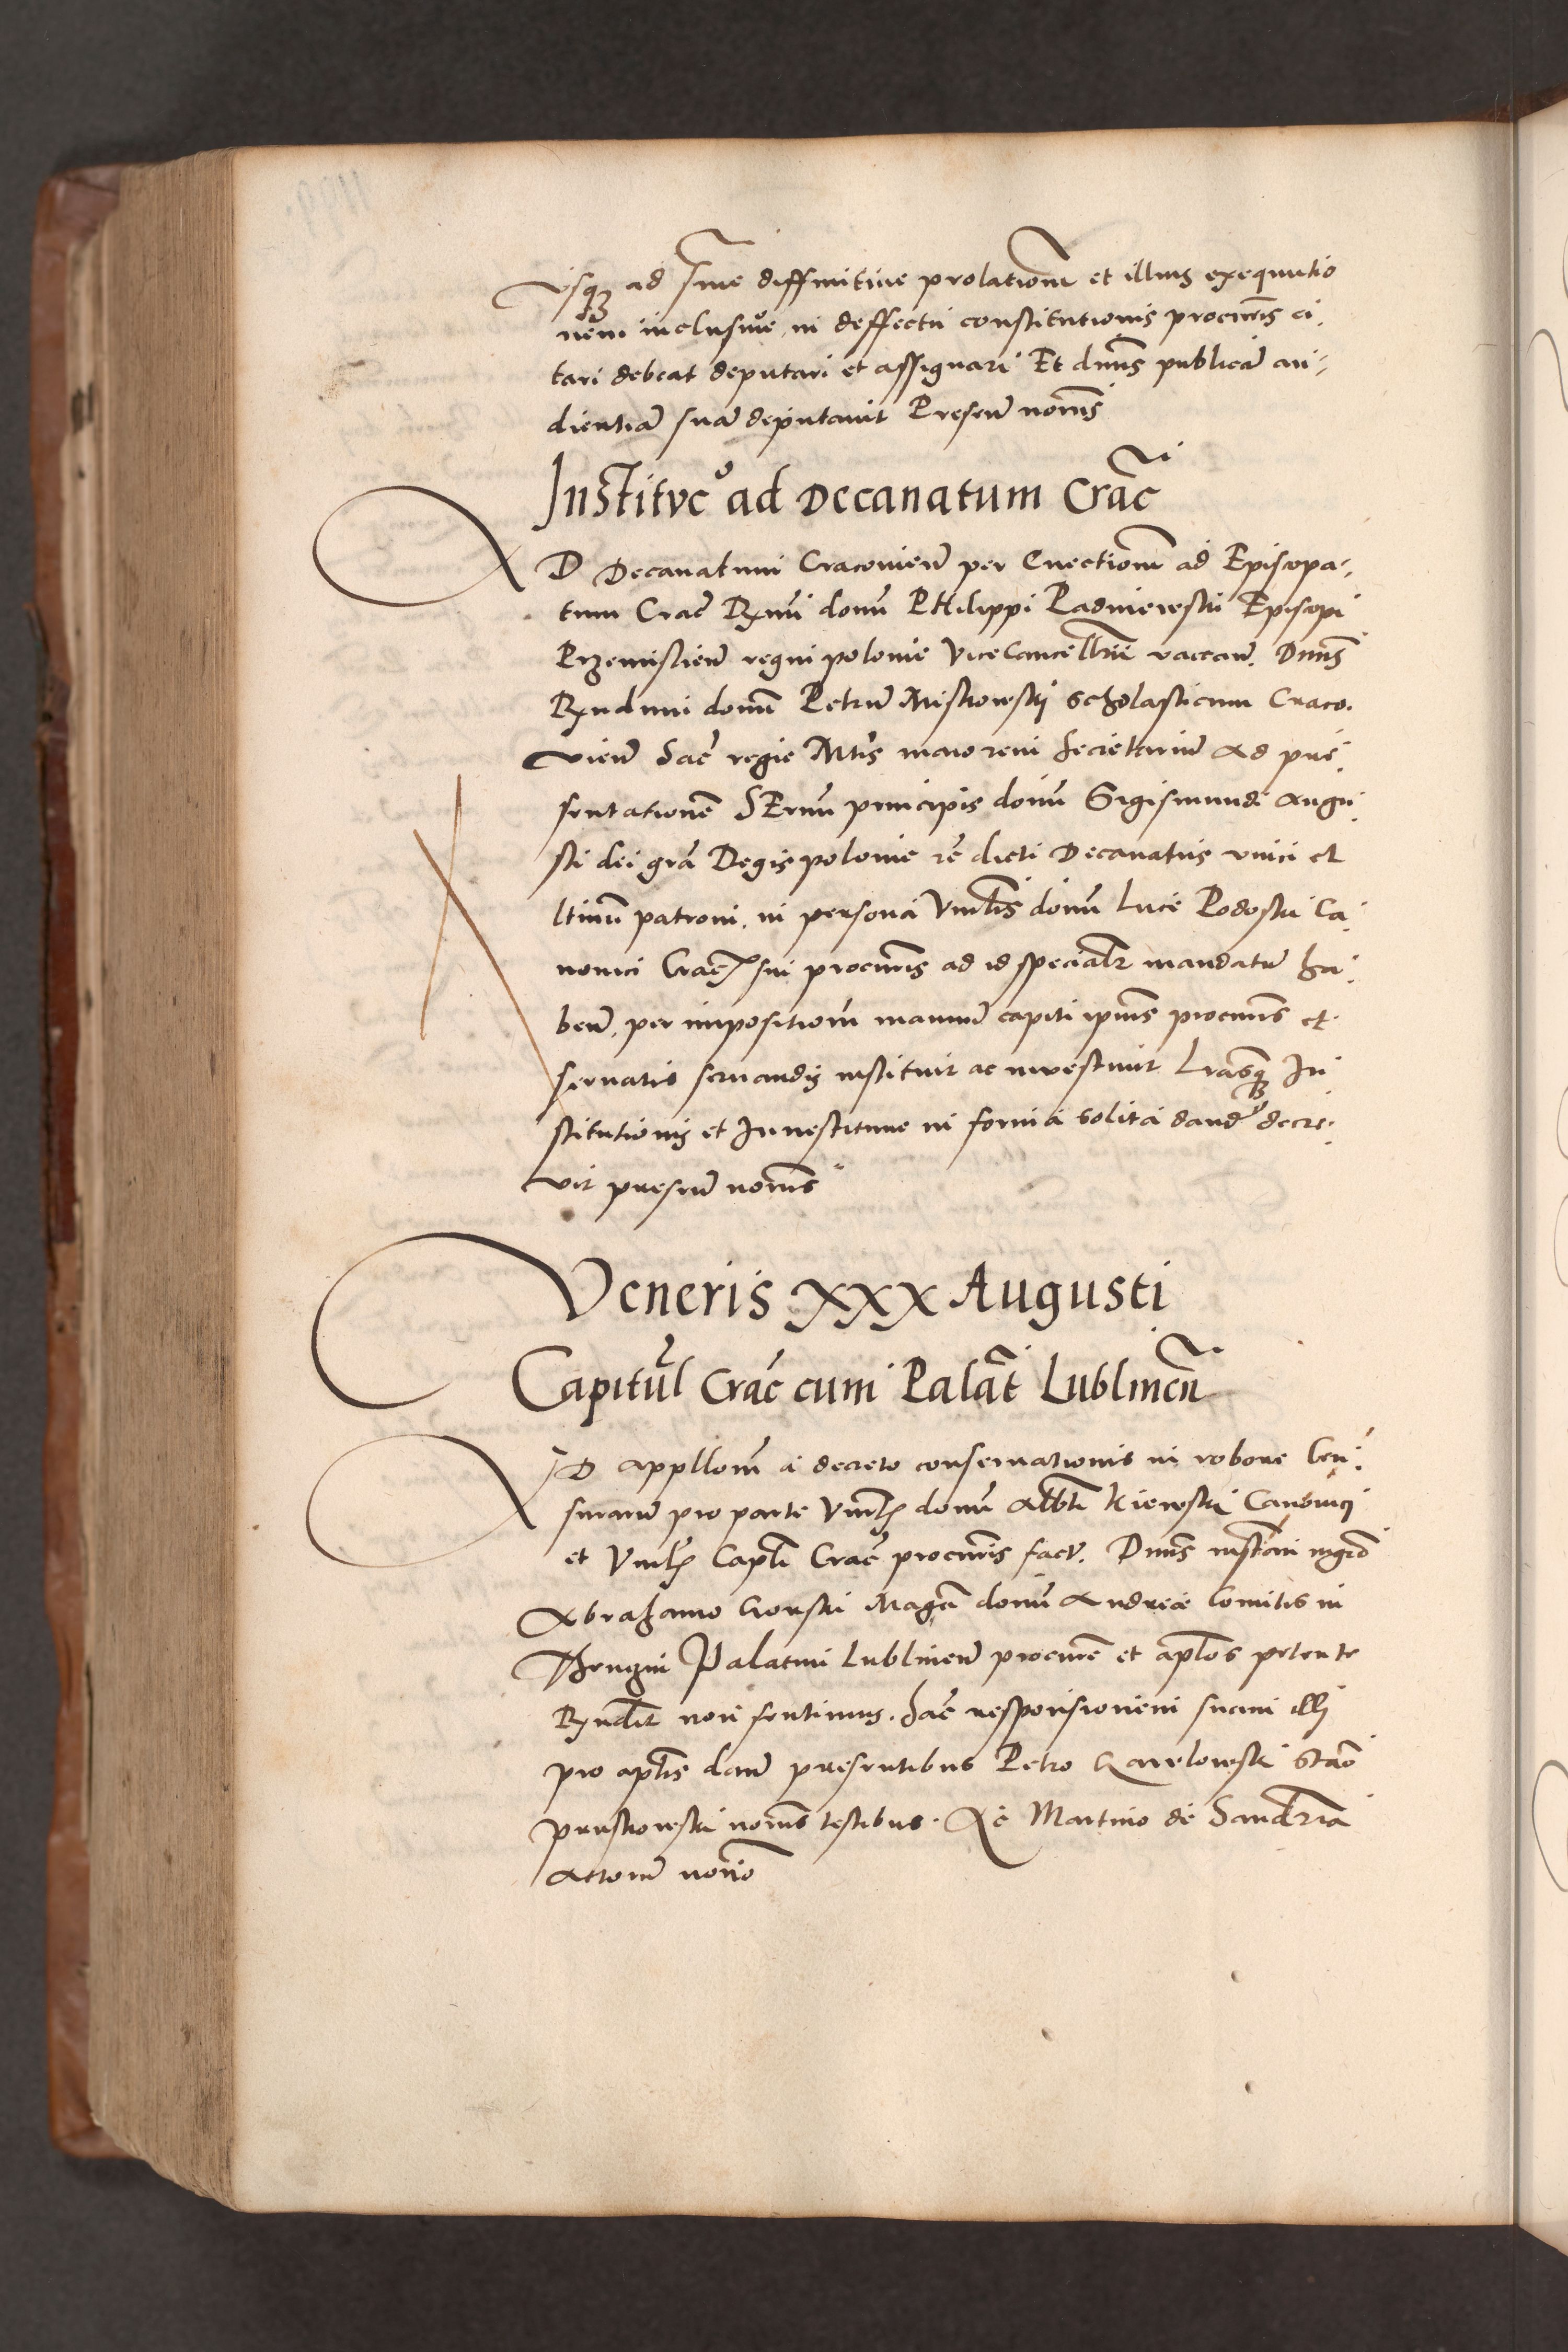 usq₃ ad sñie diffinitive prolationē et illius exequutio
nem inclusive, in deffectū constitutionis procuris ci,
tari debeat deputari et assignari Et dnus publicā au-
dientiā suā deputavit Presen̄ nobis
Institucº ad Decanatum Crac̄
AD Decanatum Cracovien̄ per Evectionē ad Episcopa-,
tum Crac̄ Rx̄mi domī PHilippi Padnievski Episcopi
Przemislien̄ regni polonie ViceCancellrii vacan̄. Dnus
Rxndum domī Petrū Miskowskij Scholasticum Craco.
vien̄ Sac̄ regie Mtis maiorem Secretariū Ad præ,
sentationē SErmī principis domī Sigismundi Augu,
sti dei grā Regis polonie rē dicti Decanatus unici et
ltimī patroni, in persona Vnblis domī Luce Podoski Ca,
nonici Crac̄ sui procuris ad id specialr mandatū ha,
ben̄, per impositionē manuū capiti ipius procuris et
servatis servandis instituit ac investivit Lrasq₃ In
stitutionis et Investiture in forma solita dand̄ decre,
vit presen̄ nobis
Veneris xxx Augusti
Capitul̄ Crac̄ cum Palat̄ Lublinen̄
AD appllonē a decreto conservationis in robore Cen,
surarū pro parte Vnbl domī Albti Kiewski Canonici
et Vnbl Capli Crac̄ procuris fact̄. Dnus instan̄ ngro
Abrahamo Gorski Magci domī Andreæ Comitis in
Thenczin Palatini Lublinen̄ procure et aplos petente
Rxndit non sentimus, hac̄ responsionem suam illi
pro aplis dan̄ presentibus Petro Gawlowski Stao
pruskowski nobis testibus. Ac Martino de Sandzia
Actorū norio